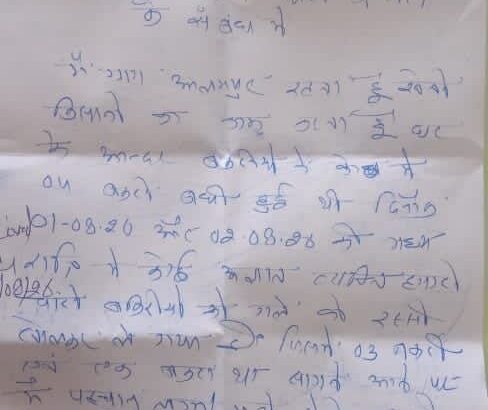 के संबंध में
मैं ग्राम आलमपुर रहता हूँ खेती
किसानी का काम करता हूँ घर
के अन्दर बकरियो के कोठा में
04 बकरी बंधी हुई थी दिनाँक
01-08.20 और 02.08.20 की मध्य
रात्रि में कोई अज्ञात व्यक्ति हमारी
चारो बकरियो को गले की रस्सी
खोलकर ले गया है जिसमें 03 बकरी
एवं एक बकरा था